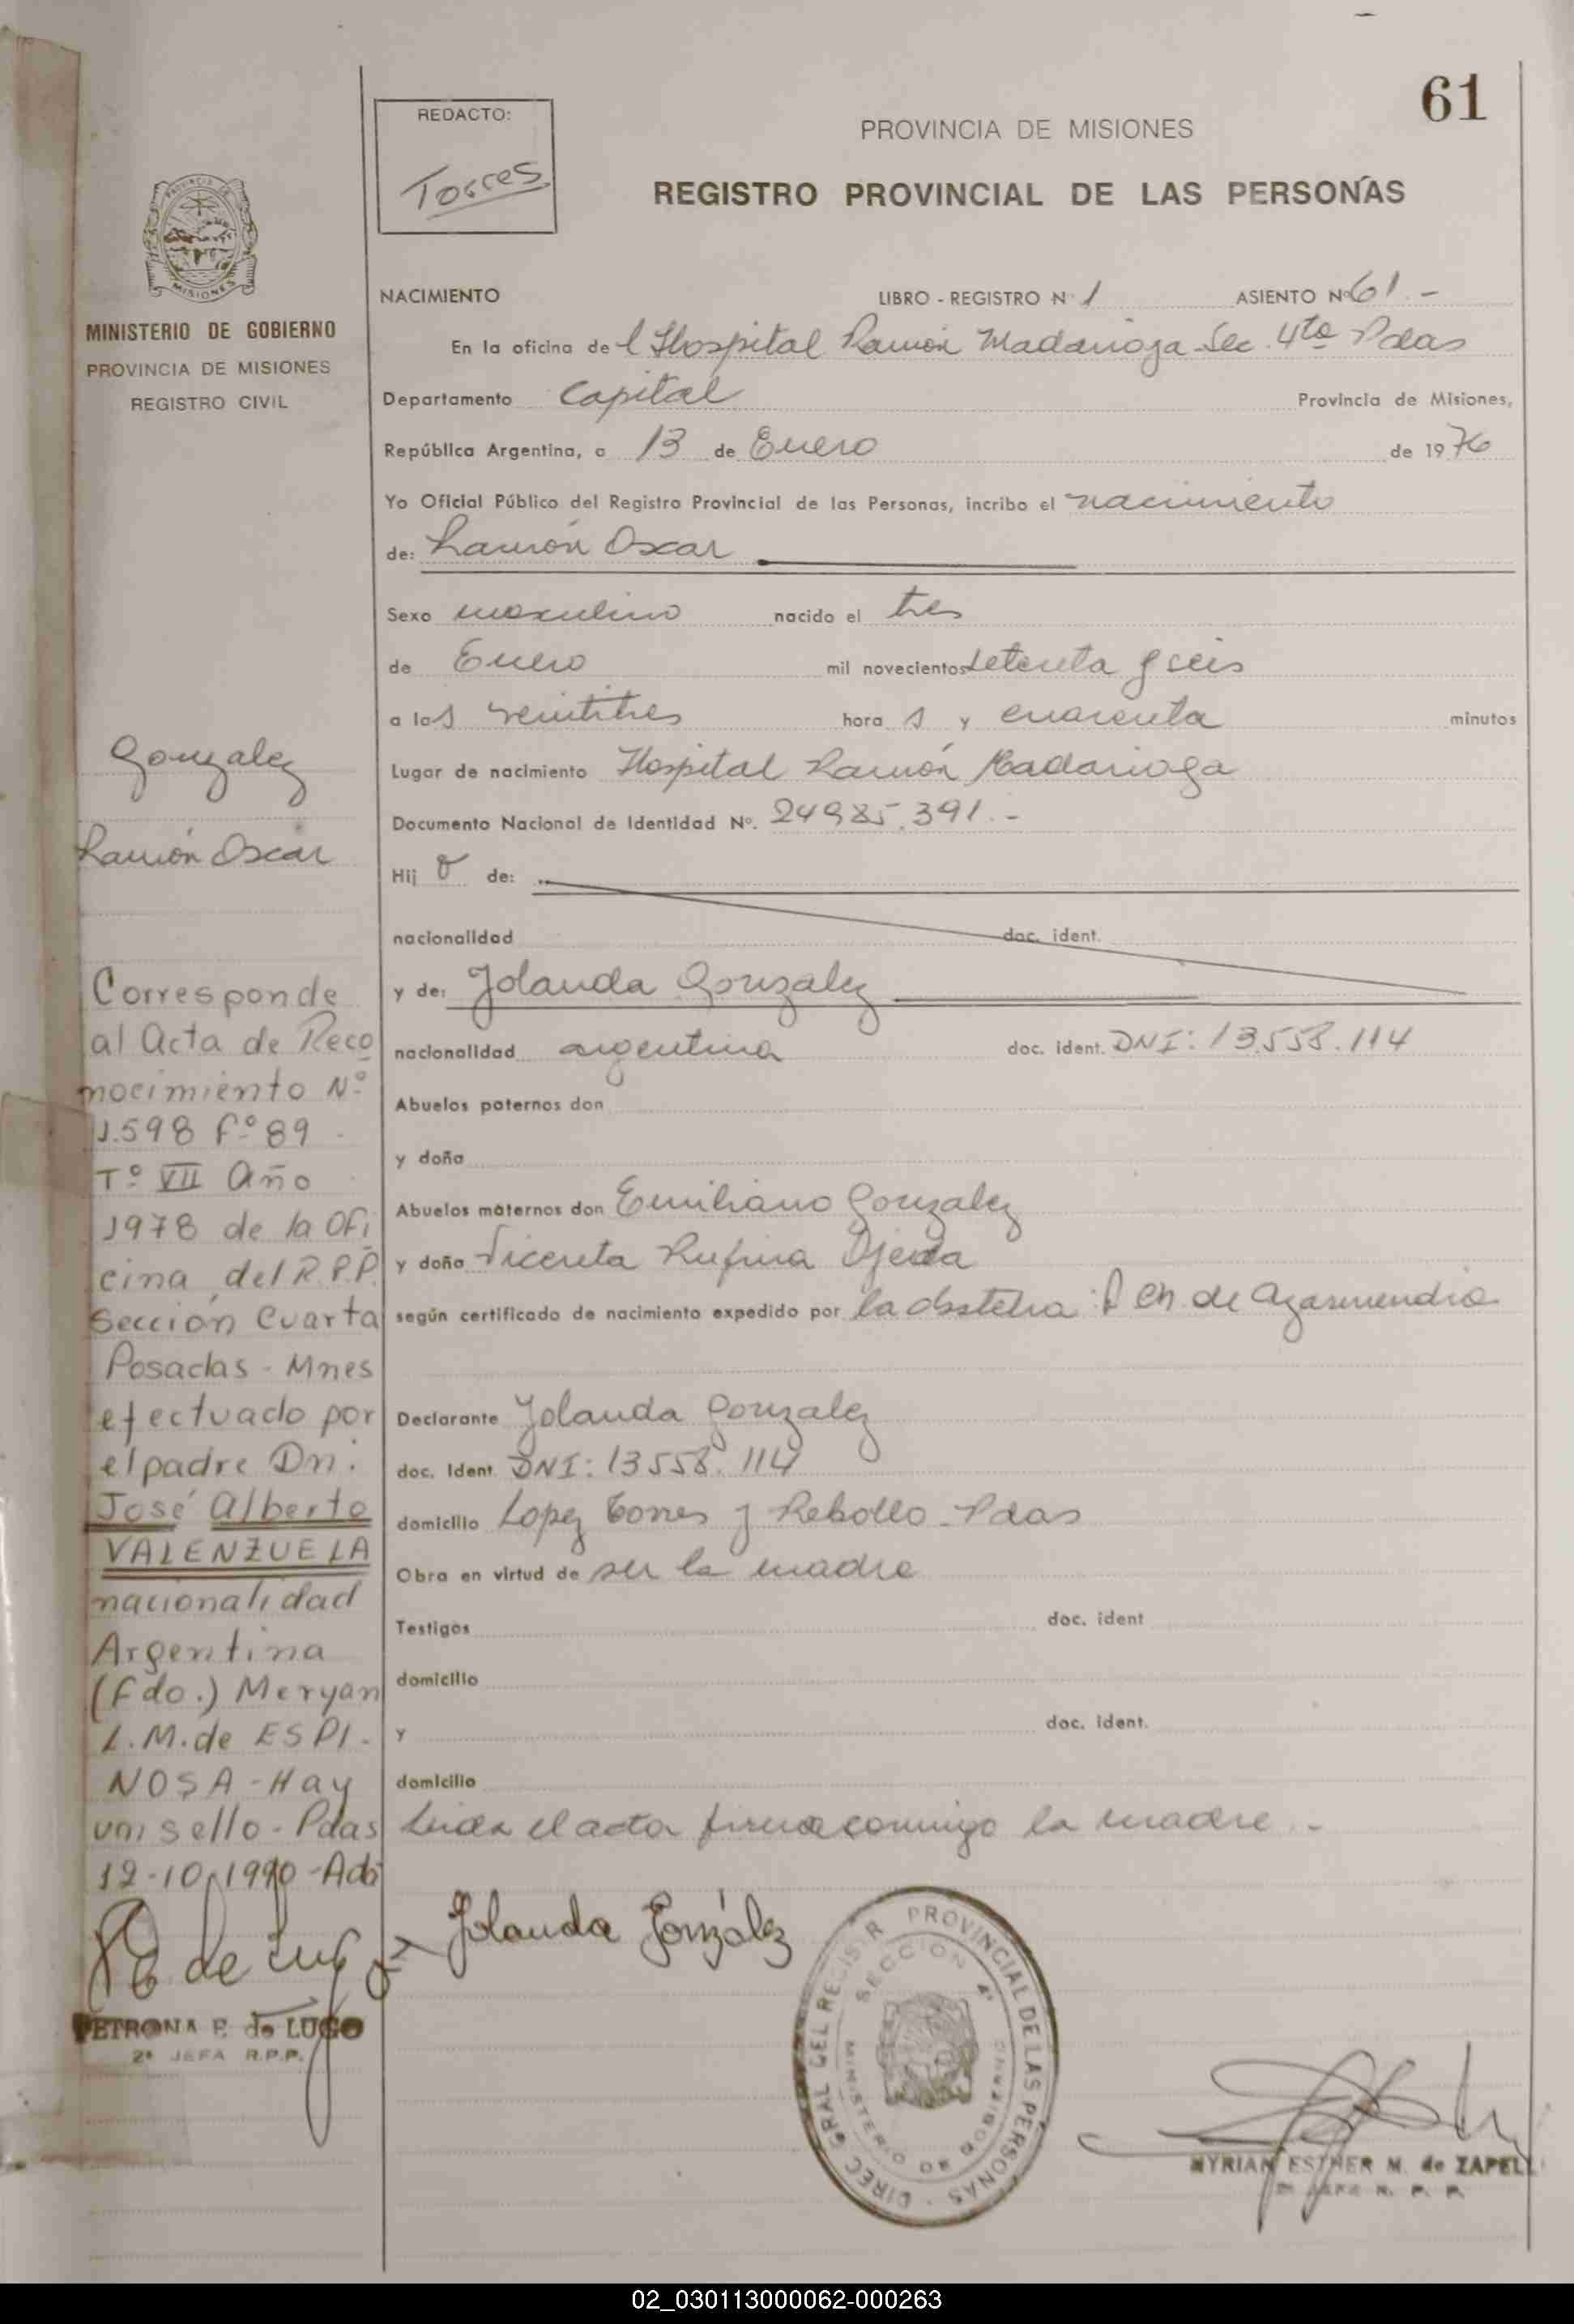 61
REDACTO:
Torres
PROVINCIA DE MISIONES
REGISTRO PROVINCIAL DE LAS PERSONAS
PROVINCIA DE
MISIONES
MINISTERIO DE GOBIERNO
PROVINCIA DE MISIONES
REGISTRO CIVIL
NACIMIENTO LIBRO - REGISTRO N 1 ASIENTO Nº 61.-
En la oficina del Hospital Ramón Madariaga Sec. 4ta Pdas
Departamento Capital Provincia de Misiones,
República Argentina, a 13 de Enero de 1976
Yo Oficial Público del Registro Provincial de las Personas, incribo el nacimiento
de: Ramón Oscar
Sexo masculino nacido el tres
de Enero mil novecientos setenta y seis
a las veintitres horas y cuarenta minutos
Lugar de nacimiento Hospital Ramón Madariaga
Documento Nacional de Identidad Nº. 24985.391.-
Hijo de:
nacionalidad doc. ident.
y de: Yolanda Gonzalez
nacionalidad argentina doc. ident. DNI: 13.558.114
Abuelos paternos don
y doña
Abuelos maternos don Emiliano Gonzalez
y doña Vicenta Rufina Ojeda
según certificado de nacimiento expedido por la obstetra: Ch de Azarmendia
Declarante Yolanda Gonzalez
doc. Ident. DNI: 13558.114
domicilio Lopez Torres y Rebollo - Pdas
Obra en virtud de ser la madre
Testigos doc. ident
domicilio
y doc. ident.
domicilio
Leida el acta firma conmigo la madre.-
Yolanda González
Gonzalez
Ramón Oscar
Corresponde
al Acta de Reco
nocimiento Nº
1.598 Fº 89
Tº VII Año
1978 de la Ofi
cina del R.P.P.
Sección Cuarta
Posadas - Mnes
efectuado por
el padre Dn:
José Alberto
VALENZUELA
nacionalidad
Argentina
(Fdo.) Meryan
L.M. de ESPI-
NOSA - Hay
un sello - Pdas
12-10-1990 -
de Lugo
PETRONA E. de LUGO
2ª JEFA R.P.P.
DIREC. GRAL DEL REGISTR PROVINCIAL DE LAS PERSONAS
SECCION 4ª
MINISTERIO DE GOBIERNO
MYRIAN ESTHER M. de ZAPELL
JEFA R. P. P.
02_030113000062-000263